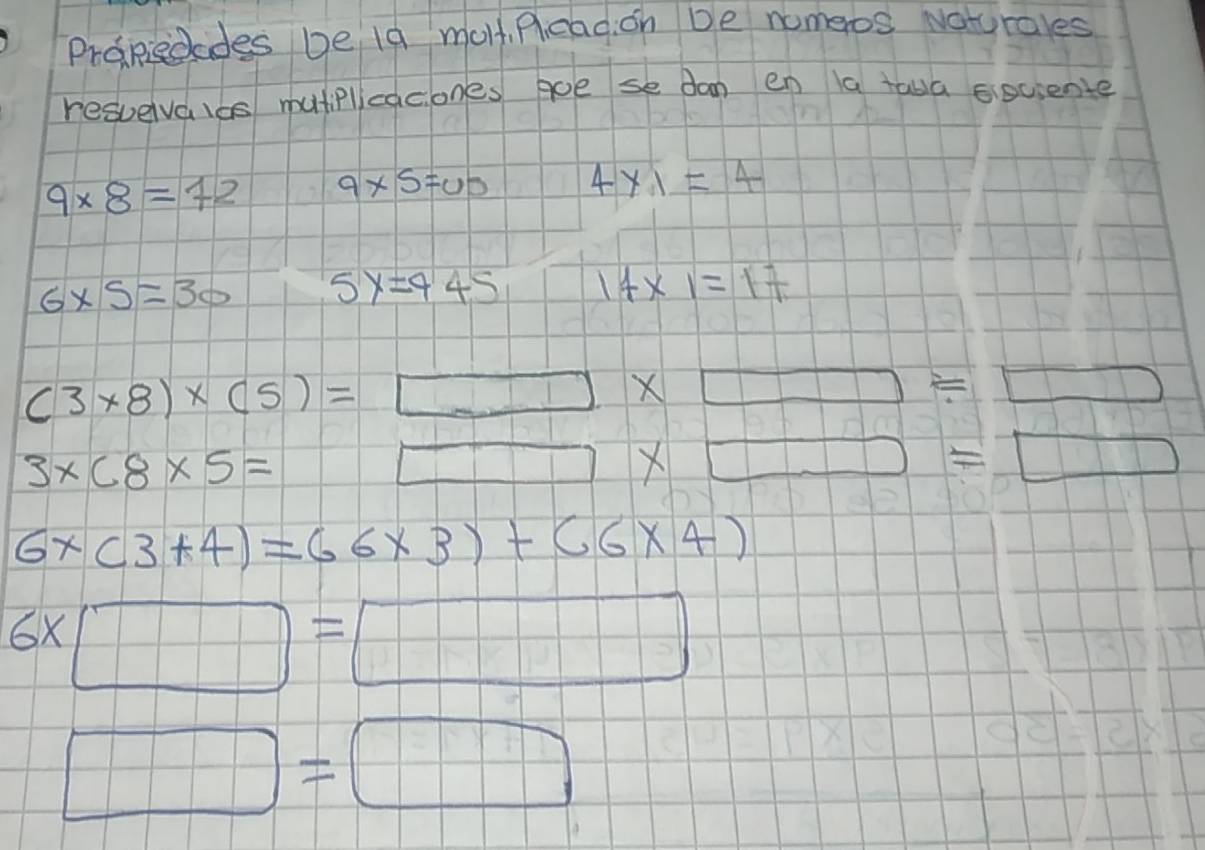 Propiedades De la multiplicación De numeros Naturales
resuelva las mutiplicaciones que se dan en la tabla
9 × 8 = 72 9 × 5 = 4 × 1 = 4
6 × 5 = 30 5 × = 9 45 17 × 1 = 17
(3 × 8) × (5) = × =
3 × (8 × 5 = × =
6 × (3 + 4) = (6 × 3) + (6 × 4)
6 × =
=